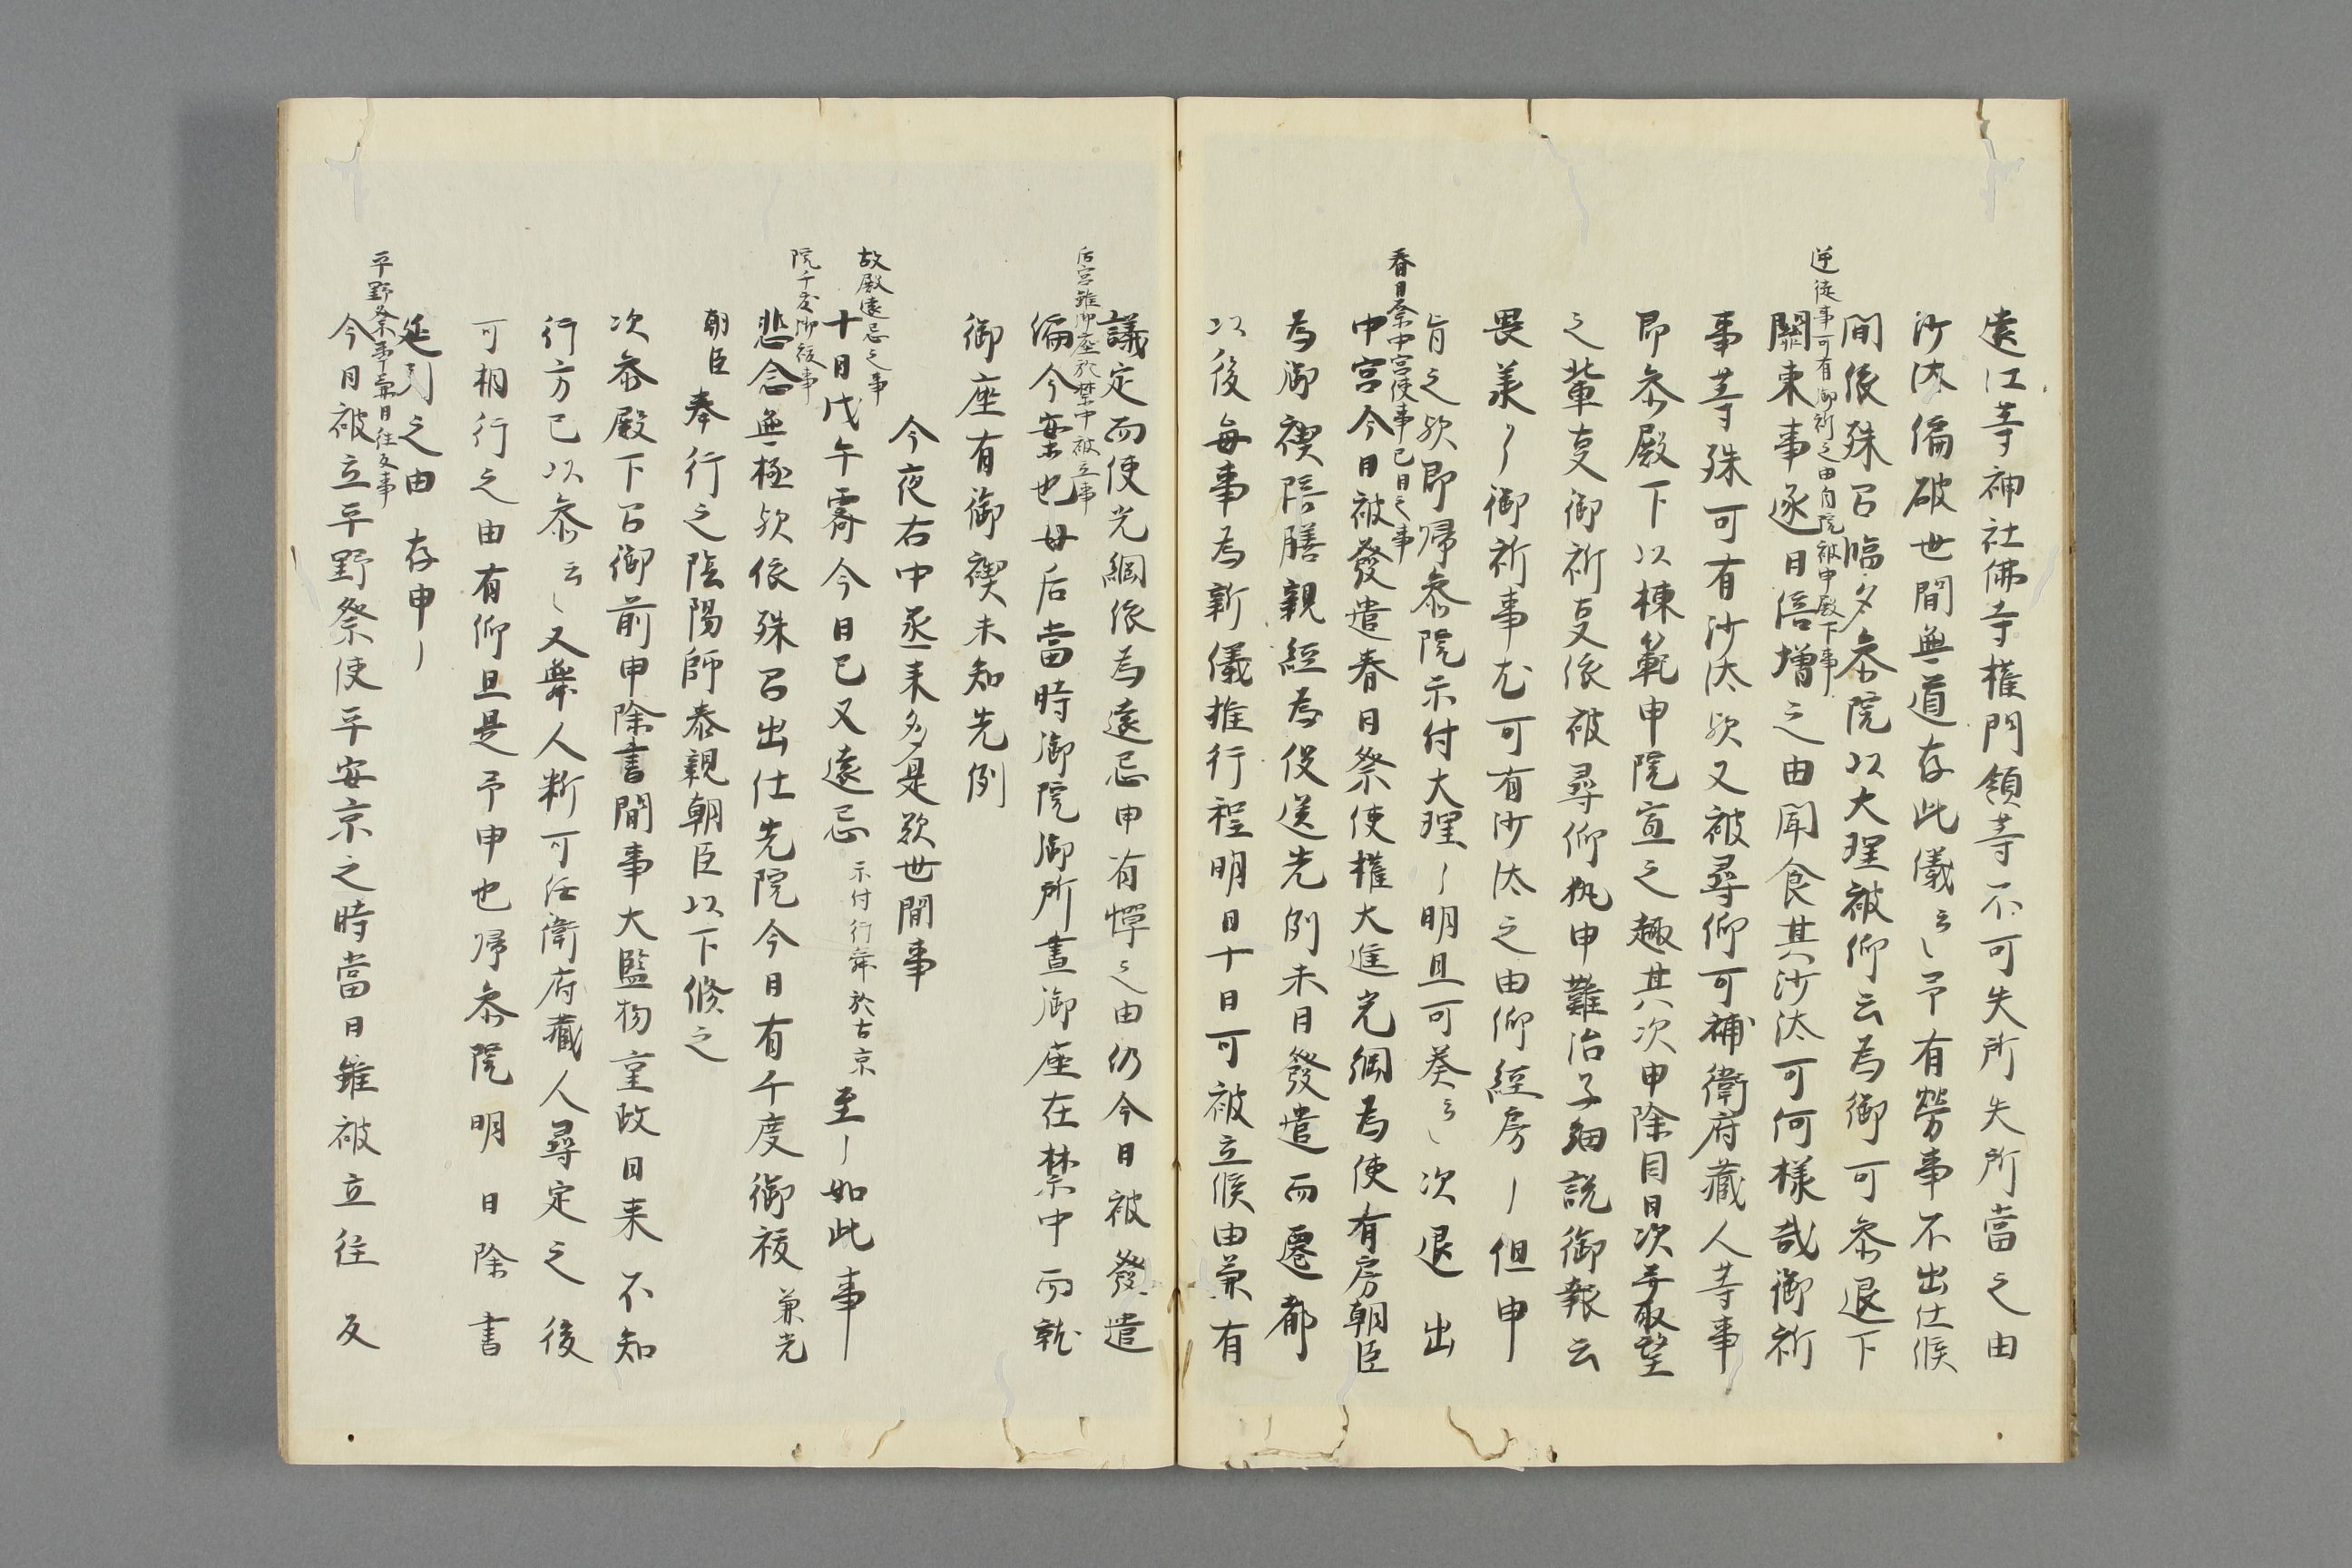 遠江等神社佛寺権門領等不可失所失所當之由
沙汰偏破世間無道存此儀云々予有勞事不出仕候
間依殊召臨夕参院以大理被仰云為御可参退下
逆徒事可有御祈之由自院被申殿下事
關東事逐日倍増之由聞食其沙汰可何様哉御祈
事等殊可有沙汰歟又被尋仰可補衛府藏人等事
即参殿下以棟範申院宣之趣其次申除目日次并取望
之輩事御祈事依被尋仰執申難治子細説御報云
畏羕了御祈事尤可有沙汰之由仰經房〳〵但申
旨之歟即歸参院示付大理〳〵明旦可葵云々次退出
春日祭中宮使事已日之事
中宮今日被發遣春日祭使権大進光綱為使有房朝臣
為御禊陪膳親經為役送先例未日發遣而遷都
以後毎事為新儀推行程明日十日可被立候由兼有
議定而使光綱依為遠忌申有憚之由仍今日被發遣
后宮雖御座於禁中被立事
偏今案也母后當時御院御所晝御座在禁中而就
御座有御禊未知先例
今夜右中丞来多是歎世間事
故殿遠忌之事
十日戊午霽今日已又遠忌示付行舜於古京至〳〵如此事〳〵
院千度御祓事
悲念無極歟依殊召出仕先院今日有千度御祓兼光
朝臣奉行之陰陽師泰親朝臣以下修之
次参殿下召御前申除書間事大監物重政目来不知
行方已以参云々又舉人断可任衛府藏人尋定之後
可相行之由有仰且是予申也歸参院明日除書
延引之由存申〳〵
平野祭事當日往反事
今日被立平野祭使平安京之時當日雖被立往反